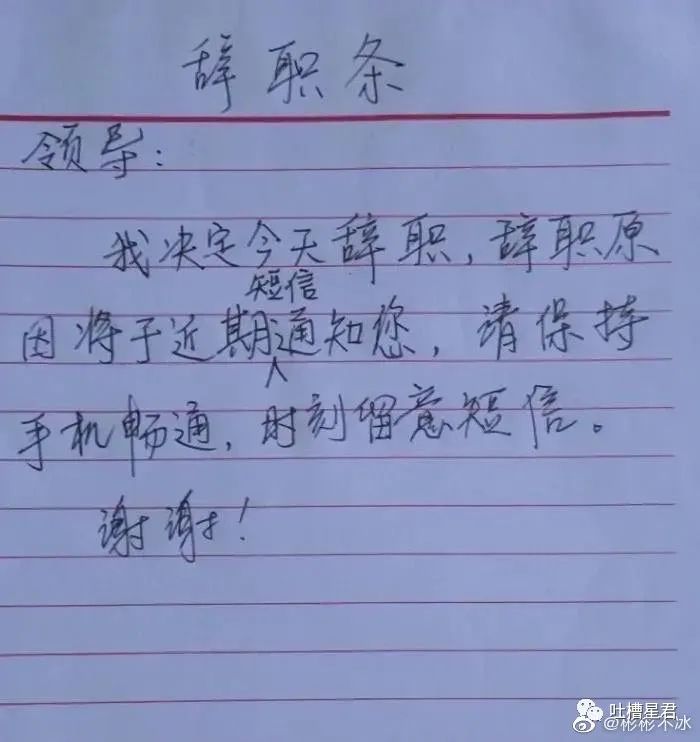 辞职条
领导：
我决定今天辞职，辞职原
因将于近期短信通知您，请保持
手机畅通，时刻留意短信。
谢谢！
吐槽星君
@彬彬不冰